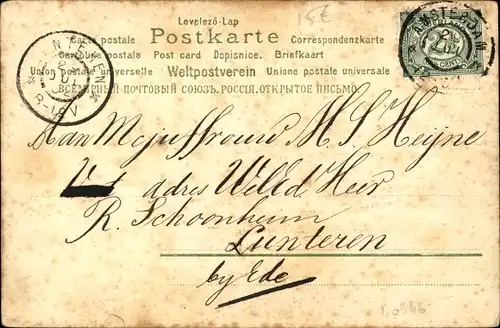 Levelező-Lap
15E
Carte postale Postkarte Correspondenzkarte
Cartolina postale Post card Dopisnice. Briefkaart
Union postale universelle Weltpostverein Unione postale universale
ВСЕМІРНЫЙ ПОЧТОВЫЙ СОЮЗЪ. РОССІЯ. ОТКРЫТОЕ ПИСЬМО.
AMSTERDAM
2½
CENT
NTEREN
8-12V
Aan Mejuffrouw M S Heyne
adres WelEd Heer
R. Schoonheim
Lunteren
by Ede